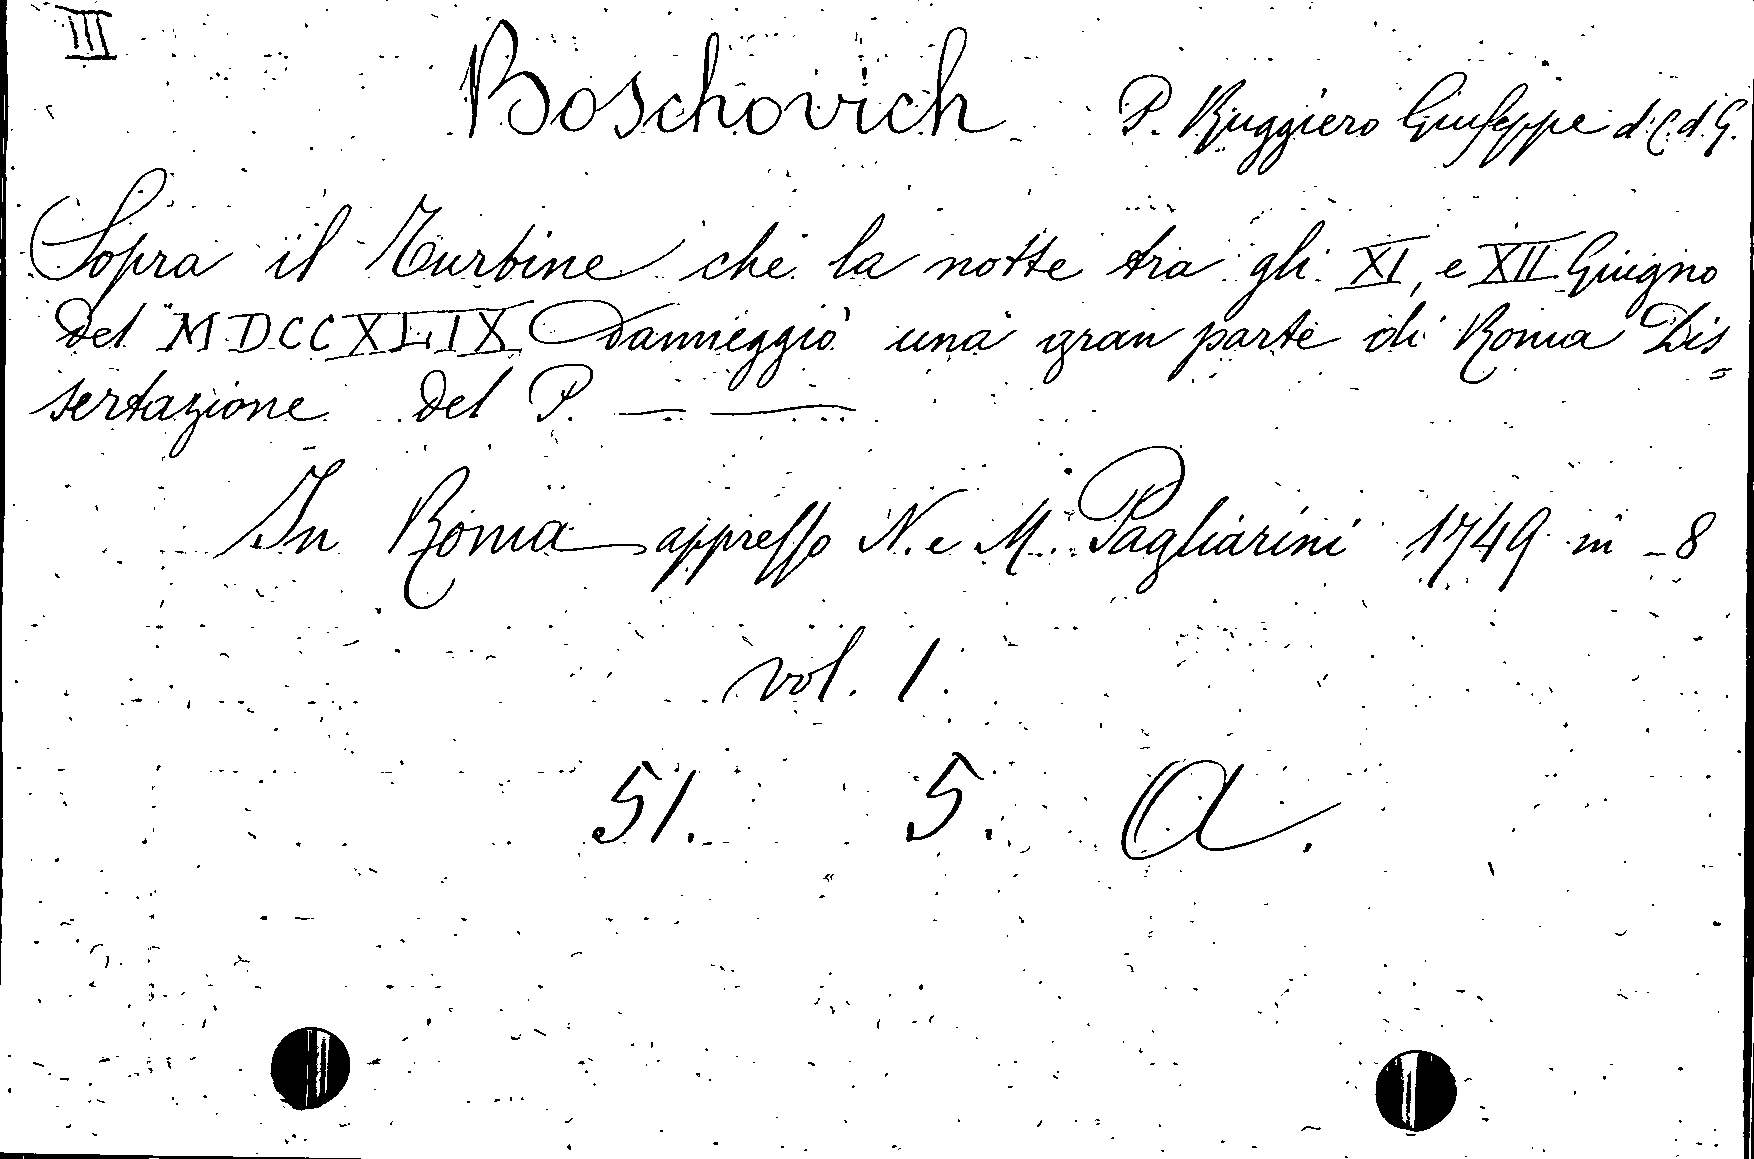 III
Boschovich P. Ruggiero Giuseppe d. C. d. G.
Sopra il Turbine che la notte tra gli XI, e XII Giugno
del MDCCXLIX Danneggiò una gran parte di Roma Dis=
sertazione del P. — —
In Roma appresso N. e M. Pagliarini 1749 in -8
vol. 1.
51. 5. A.